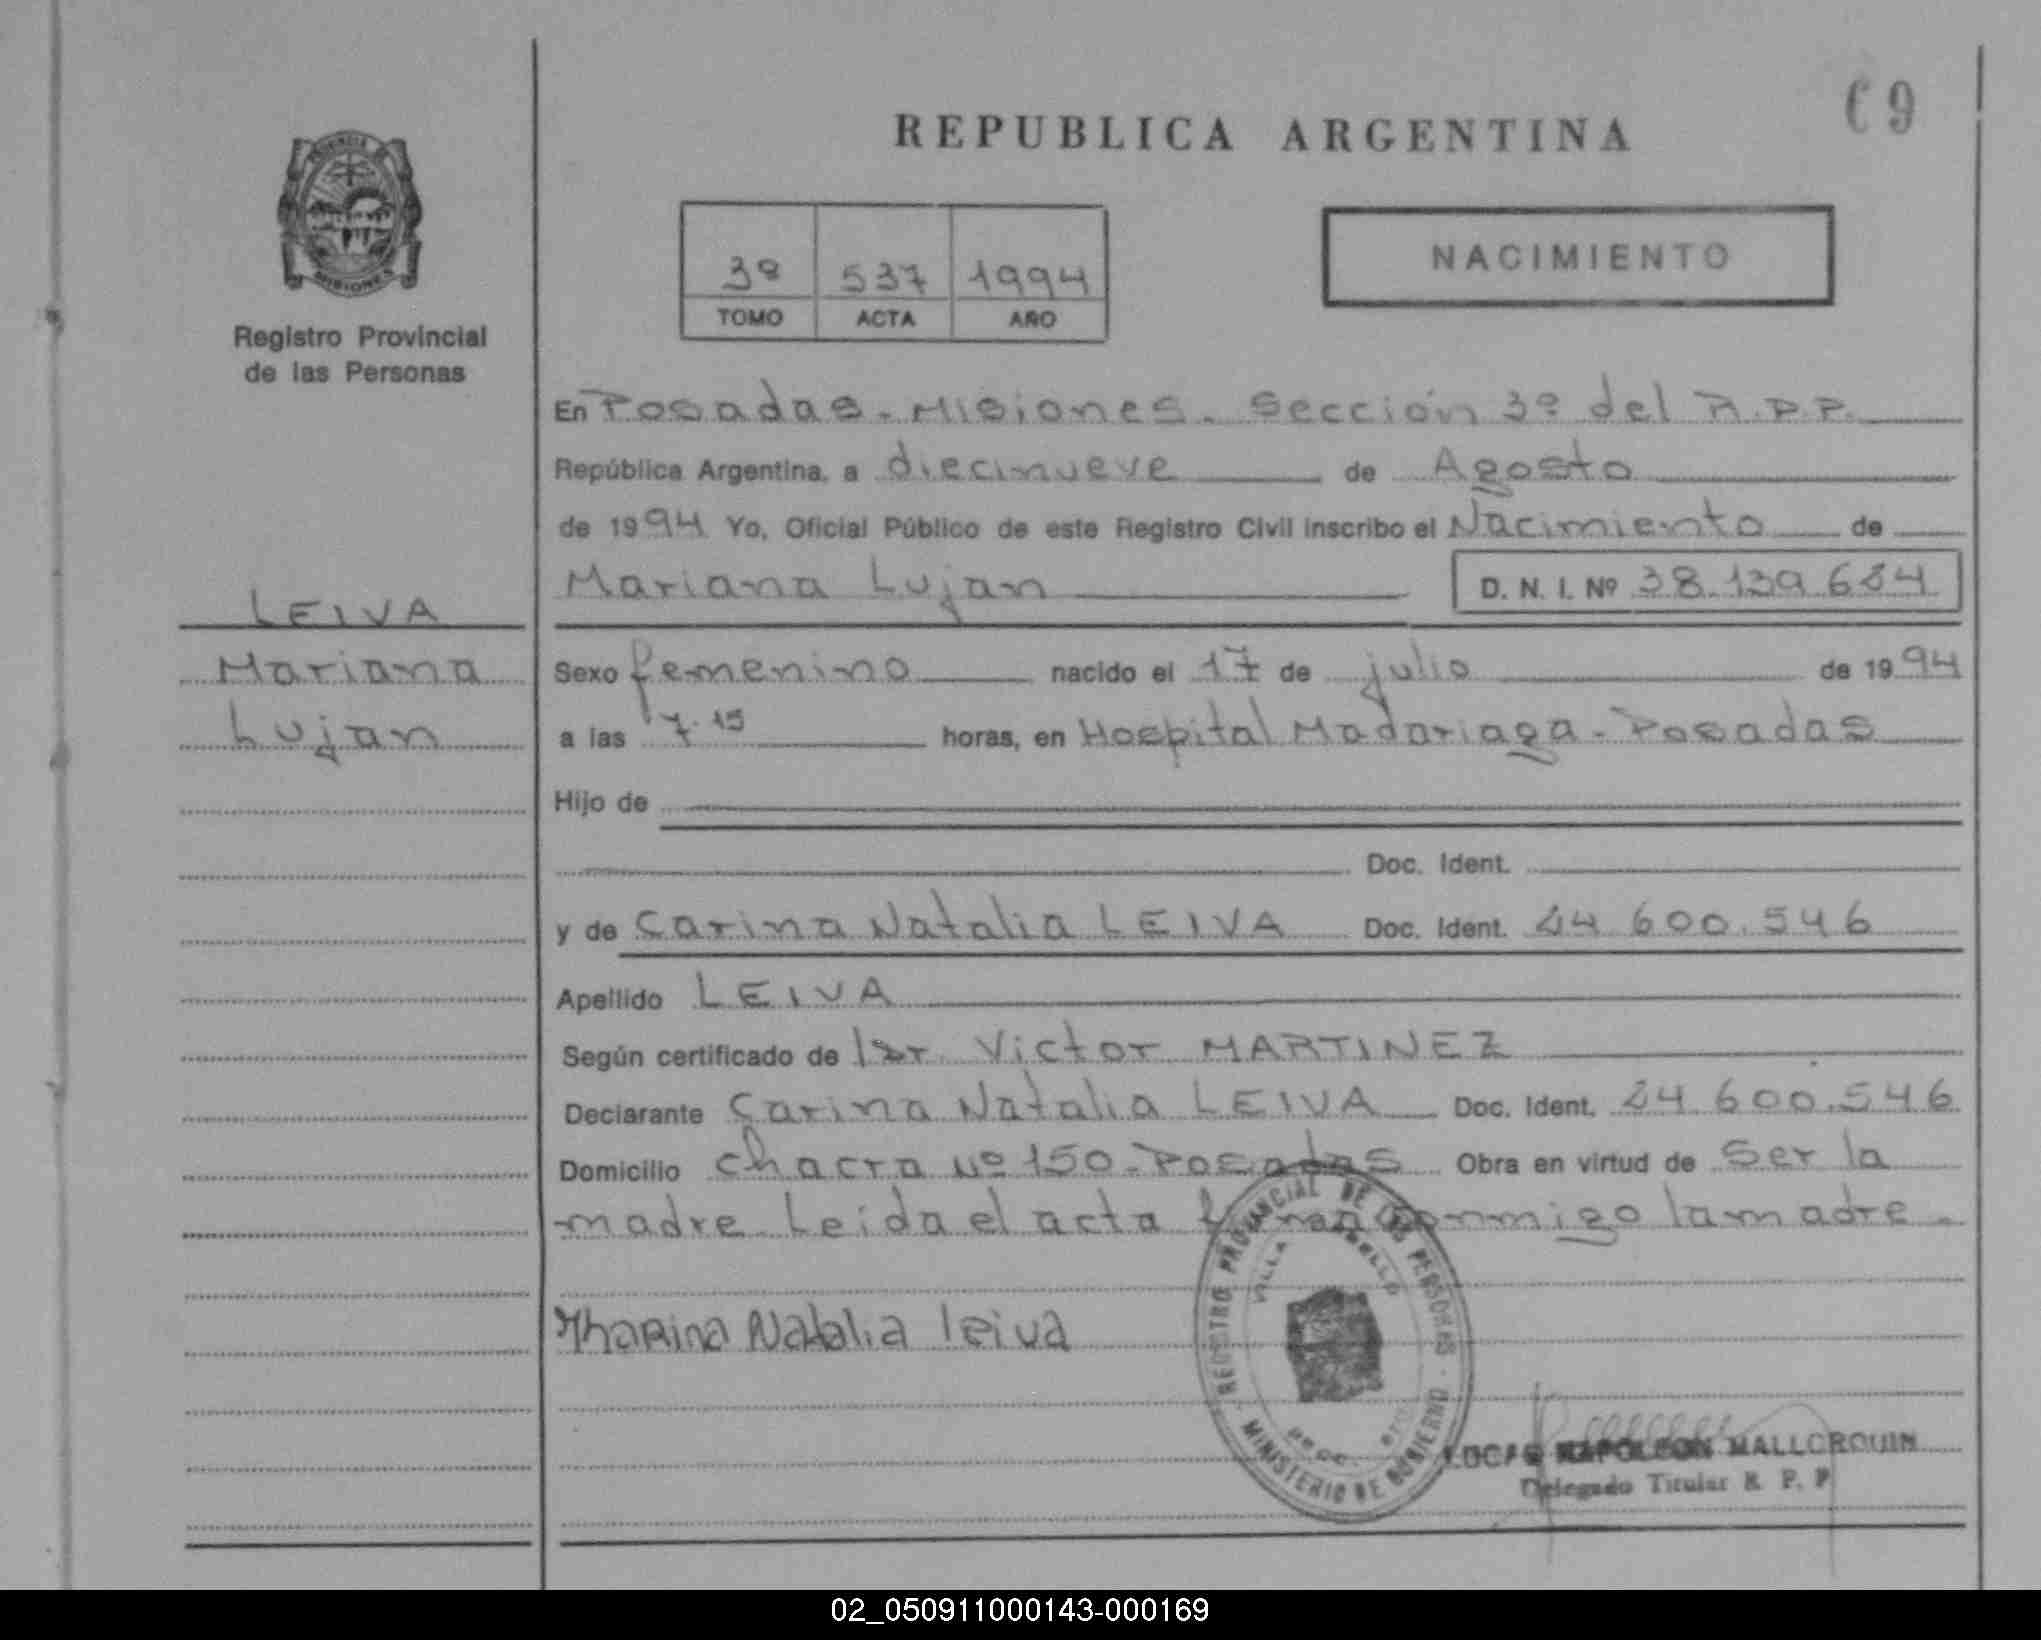 69
REPUBLICA ARGENTINA
PROVINCIA DE
MISIONES
Registro Provincial
de las Personas
NACIMIENTO
38 537 1994
TOMO ACTA AÑO
En Posadas - Misiones - Sección 3º del R.P.P.
República Argentina, a diecinueve de Agosto
de 1994 Yo, Oficial Público de este Registro Civil inscribo el Nacimiento de
Mariana Lujan D. N. I. Nº 38.139.684
LEIVA
Mariana
Lujan
Sexo femenino nacido el 17 de julio de 1994
a las 7.15 horas, en Hospital Madariaga - Posadas
Hijo de
Doc. Ident.
y de Carina Natalia LEIVA Doc. Ident. 24.600.546
Apellido LEIVA
Según certificado de Dr. Victor MARTINEZ
Declarante Carina Natalia LEIVA Doc. Ident. 24.600.546
Domicilio Chacra Nº 150 - Posadas Obra en virtud de Ser la
madre. Leida el acta firman conmigo la madre.
Kharina Natalia leiva
REGISTRO PROVINCIAL DE LAS PERSONAS
VILLA
MINISTERIO DE GOBIERNO
LUCAS NAPOLEON MALLORQUIN
Delegado Titular R. P. P
02_050911000143-000169